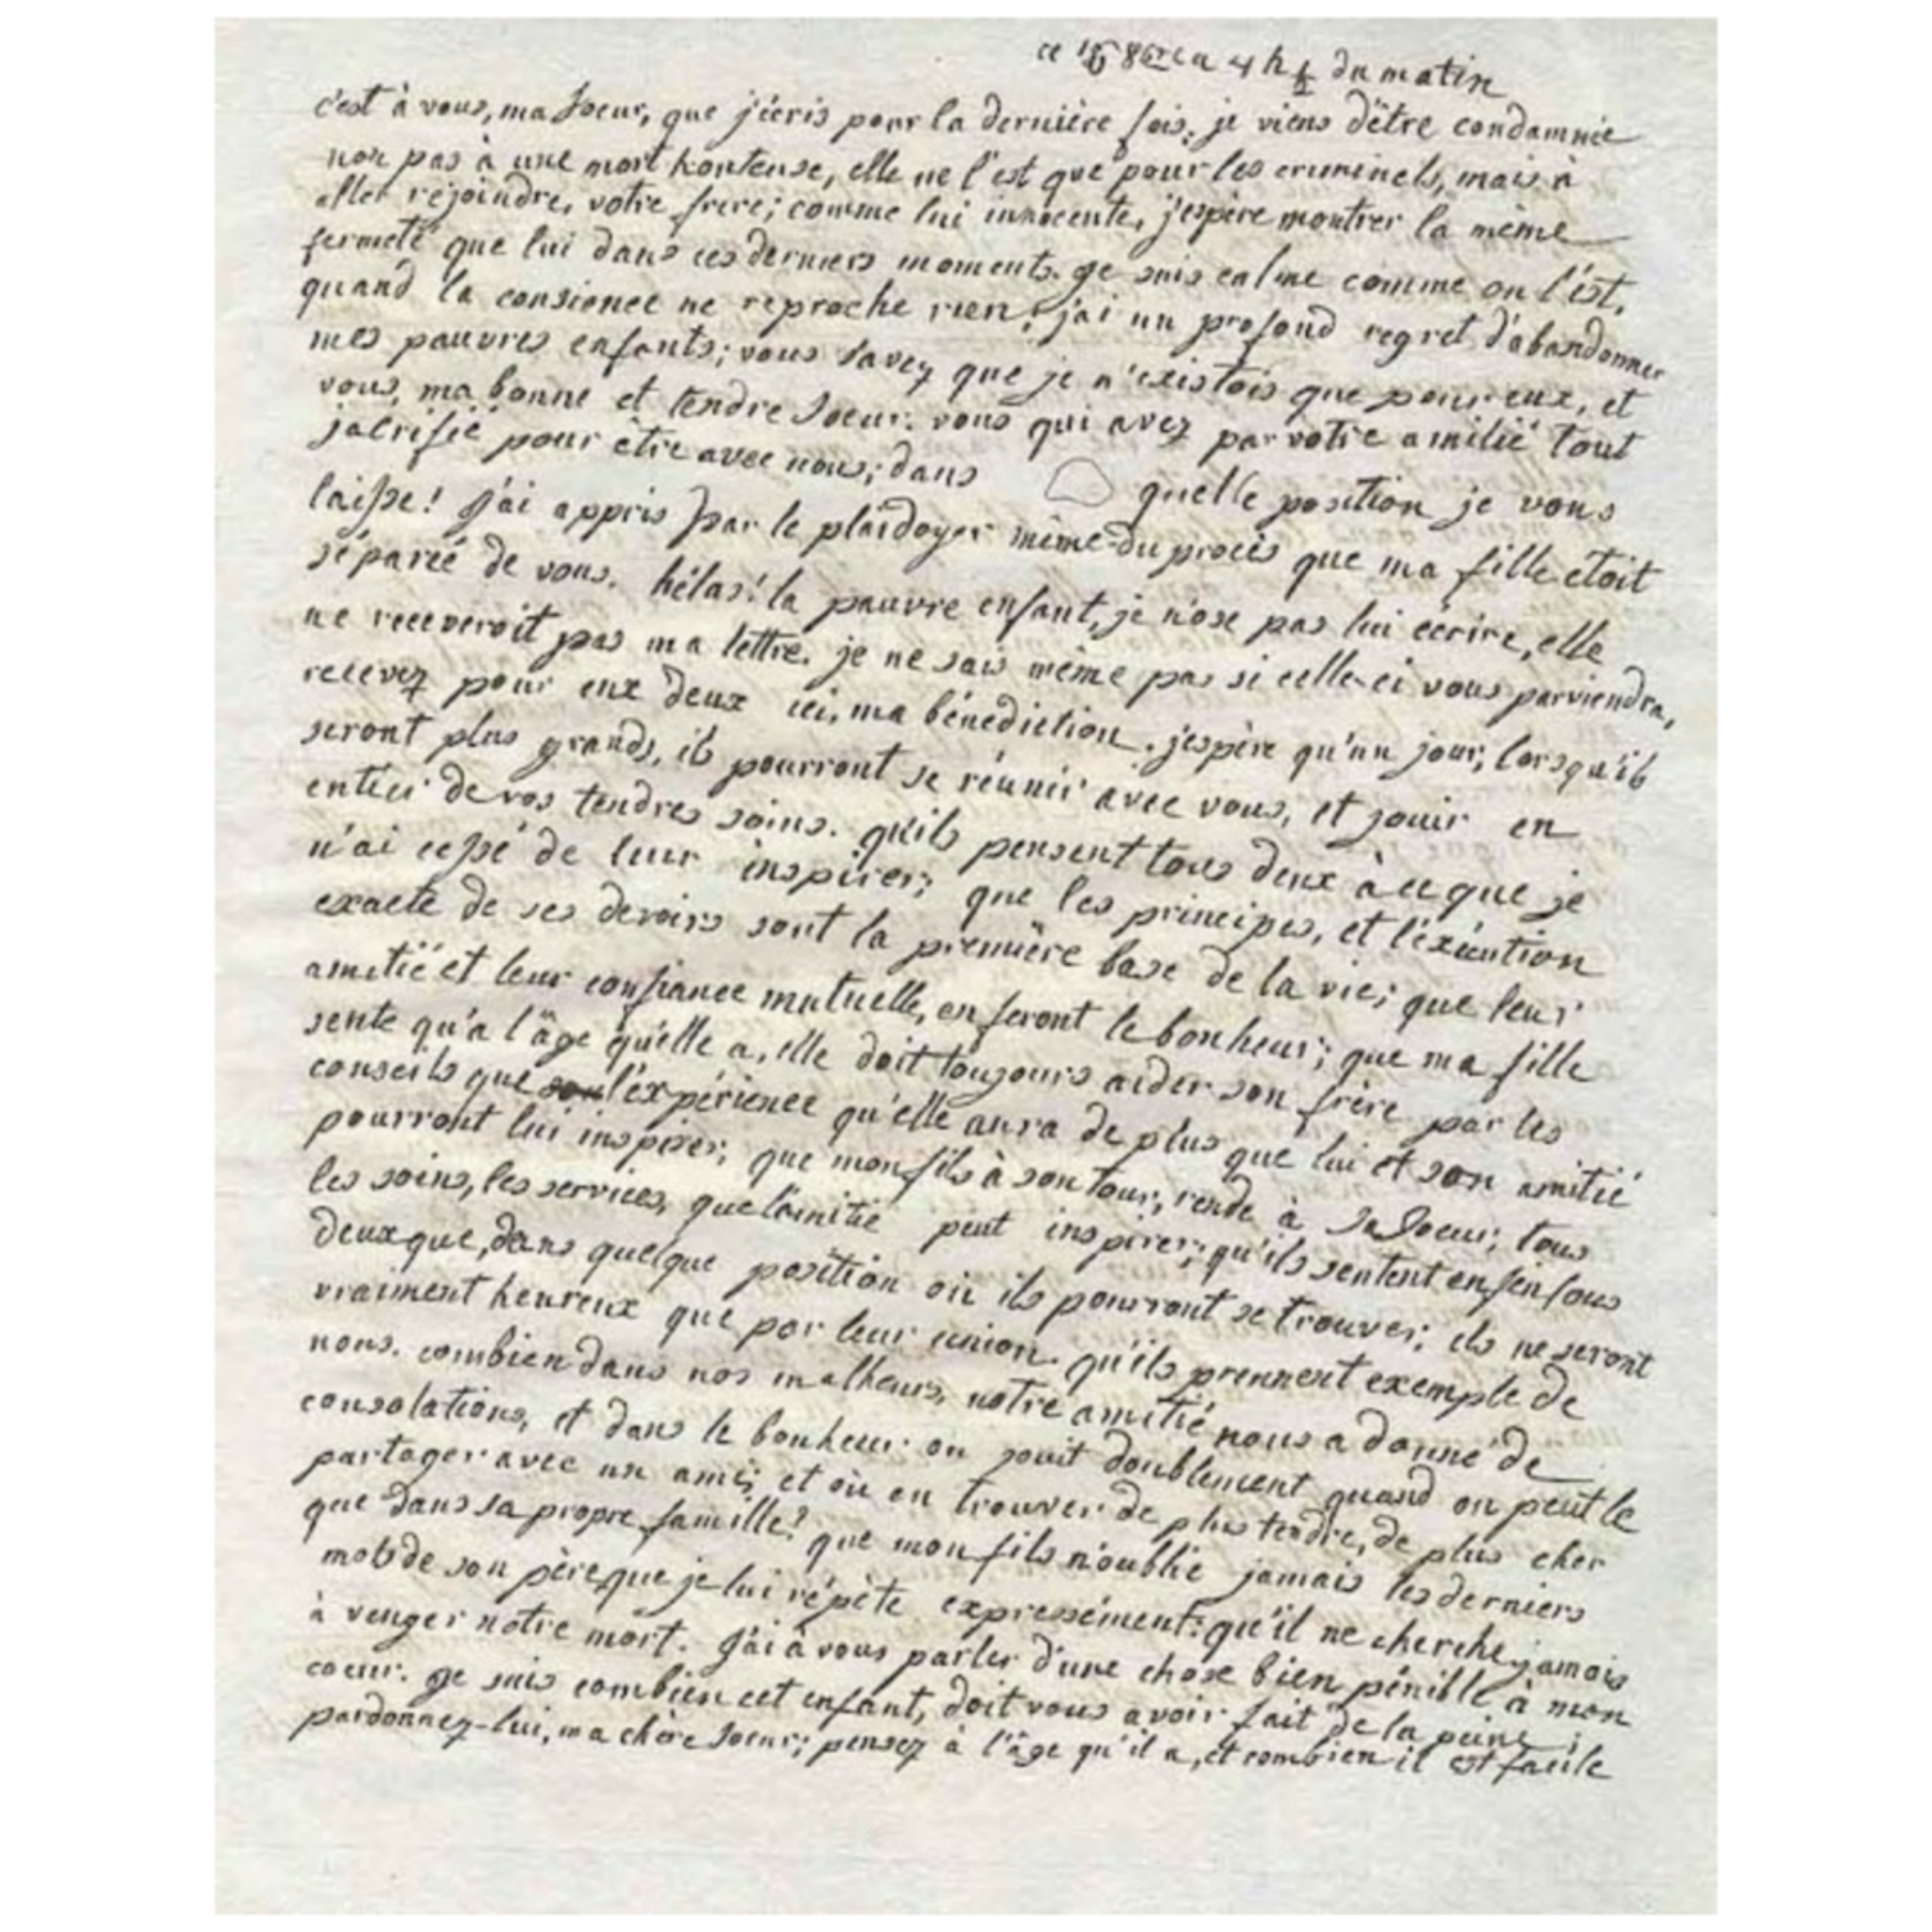 ce 16 8bre a 4 h ½ du matin
c'est à vous, ma soeur, que j'écris pour la dernière fois; je viens d'être condamnée
non pas à une mort honteuse, elle ne l'est que pour les criminels, mais à
aller rejoindre, votre frere; comme lui innocente, j'espère montrer la même
fermeté que lui dans ces derniers moments. je suis calme comme on l'est,
quand la consience ne reproche rien; j'ai un profond regret d'abandonner
mes pauvres enfants; vous savez que je n'existois que pour eux, et
vous, ma bonne et tendre soeur. vous qui avez par votre amitié tout
sacrifié pour être avec nous; dans quelle position je vous
laisse! j'ai appris par le plaidoyer même du procès que ma fille étoit
séparée de vous. hélas! la pauvre enfant, je n'ose pas lui écrire, elle
ne receveroit pas ma lettre. je ne sais même pas si celle-ci vous parviendra,
recevez pour eux deux ici, ma bénédiction. j'espère qu'un jour, lorsqu'ils
seront plus grands, ils pourront se réunir avec vous, et jouir en
entier de vos tendres soins. qu'ils pensent tous deux à ce que je
n'ai cessé de leur inspirer; que les principes, et l'éxécution
exacte de ses devoirs sont la première base de la vie; que leur
amitié et leur confiance mutuelle, en feront le bonheur; que ma fille
sente qu'a l'âge qu'elle a, elle doit toujours aider son frère par les
conseils que l'expérience qu'elle aura de plus que lui et son amitié
pourront lui inspirer; que mon fils à son tour, rende à sa soeur; tous
les soins, les services, que l'amitié peut inspirer; qu'ils sentent enfin tous
deux que, dans quelque position où ils pourront se trouver; ils ne seront
vraiment heureux que par leur union. qu'ils prennent exemple de
nous. combien dans nos malheurs, notre amitié nous a donné de
consolations, et dans le bonheur on jouit doublement quand on peut le
partager avec un ami; et où en trouver de plus tendre, de plus cher
que dans sa propre famille? que mon fils n'oublie jamais les derniers
mots de son père, que je lui répète expressément: qu'il ne cherche jamais
à venger notre mort. j'ai à vous parler d'une chose bien pénible à mon
coeur. je sais combien cet enfant, doit vous avoir fait de la peine;
pardonnez-lui, ma chère soeur; pensez à l'âge qu'il a, et combien il est facile